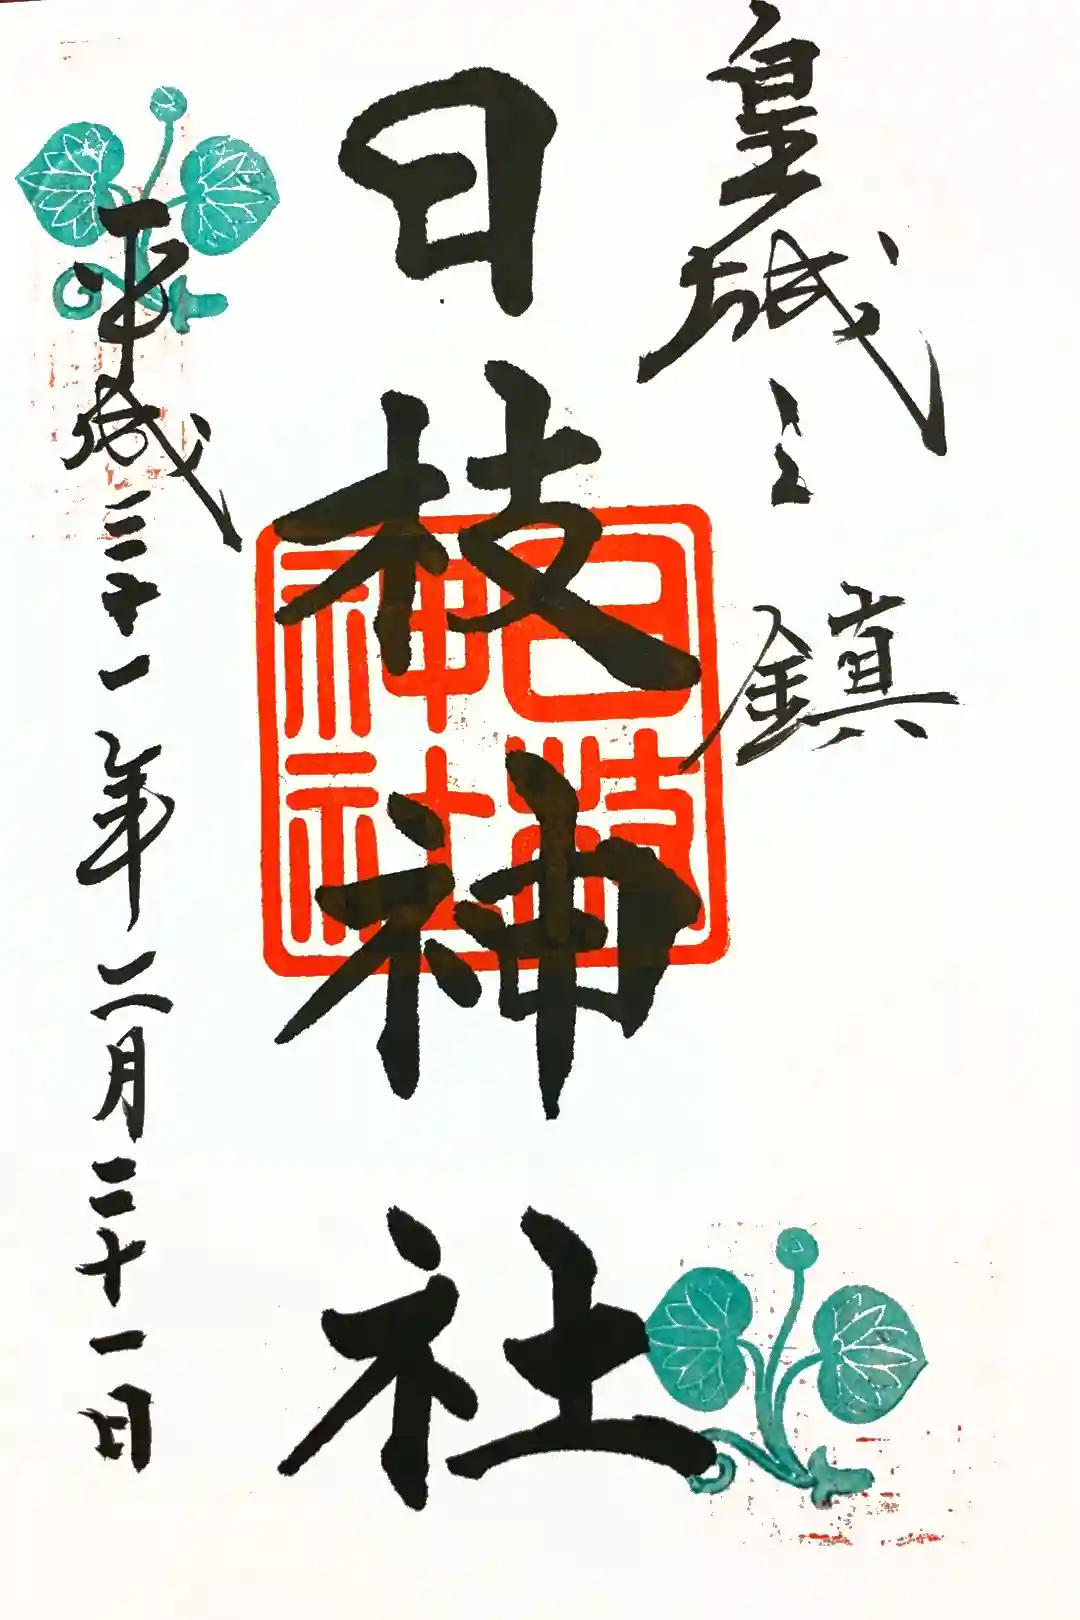 皇城之鎮
日枝神社
日枝神社
平成三十一年二月二十一日